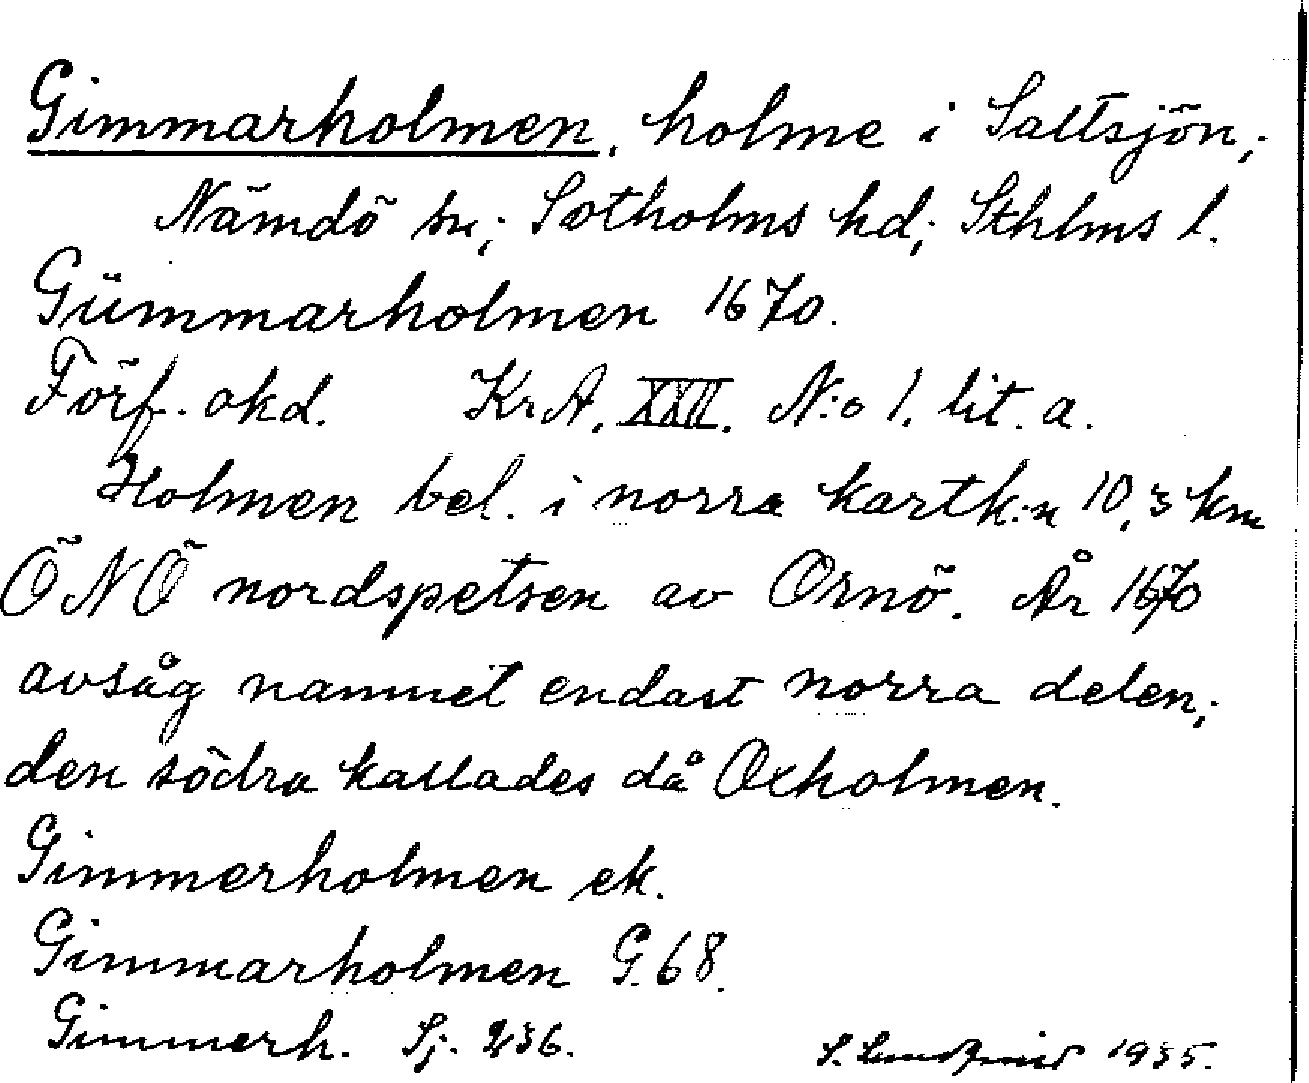 Gimmarholmen, holme i Saltsjön;
Nämdö sn; Sotholms hd; Sthlms l.
Gümmarholmen 1670.
Förf. okd. KrA. XXII. N:o 1. lit. a.
Holmen bel. i norra kartk:n 10,3 km
ÖNÖ nordspetsen av Ornö. År 1670
avsåg namnet endast norra delen;
den södra kallades då Oxholmen.
Gimmerholmen ek.
Gimmarholmen G. 68.
Gimmerh. Sj. 236.
S. 1935.